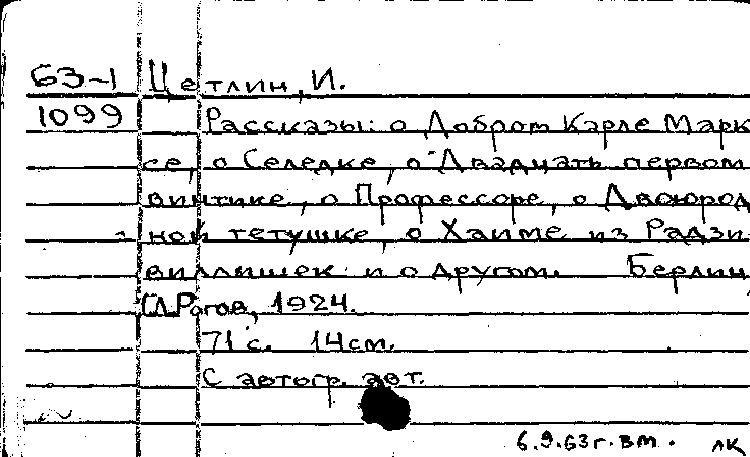 63-1 Цетлин, И.
1099 Рассказы: о Добром Карле Марк
се, о Селедке, о Двадцать первом
винтике, о Профессоре, о Двоюрод
ной тетушке, о Хаиме из Радзи
виллишек и о другом. Берлин,
Рогов, 1924.
71 с. 14 см.
С автогр. авт.
6.9.63 г. вм. лк